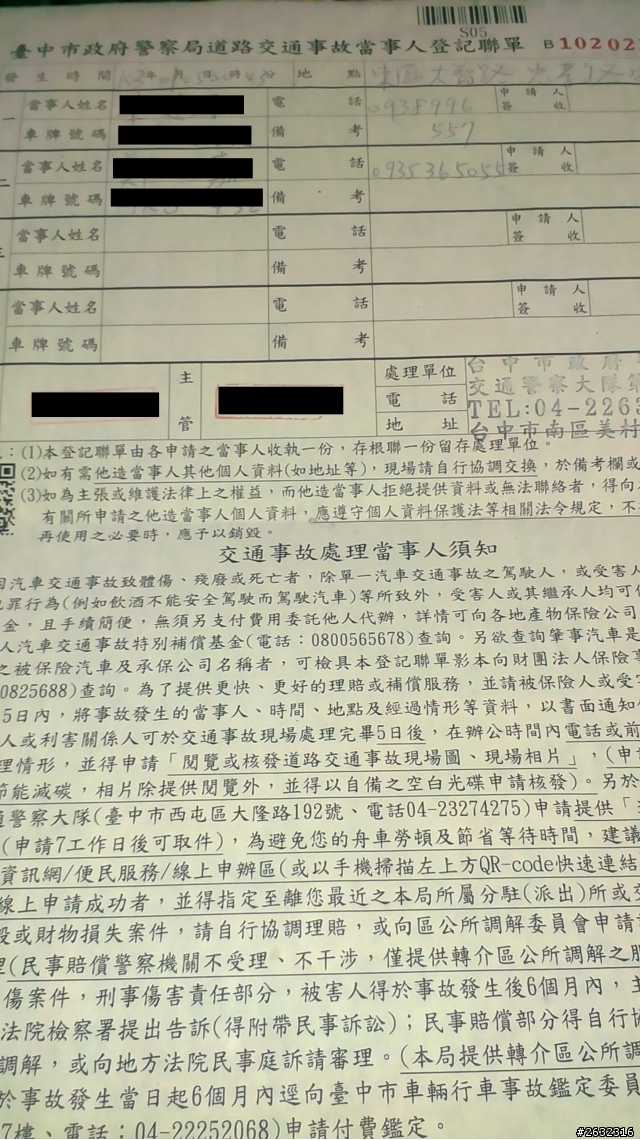 S05
臺中市政府警察局道路交通事故當事人登記聯單 B10202
發生時間 年 月 日 時 份 地點
一 當事人姓名 電話 0938996 申請人簽收
車牌號碼 備考 557
二 當事人姓名 電話 0935365055 申請人簽收
車牌號碼 備考
三 當事人姓名 電話 申請人簽收
車牌號碼 備考
當事人姓名 電話 申請人簽收
車牌號碼 備考
主管 處理單位 台中市政府
交通警察大隊第
電話 TEL:04-2263
地址 台中市南區美村
:(1)本登記聯單由各申請之當事人收執一份,存根聯一份留存處理單位。
(2)如有需他造當事人其他個人資料(如地址等),現場請自行協調交換,於備考欄或
(3)如為主張或維護法律上之權益,而他造當事人拒絕提供資料或無法聯絡者,得向
有關所申請之他造當事人個人資料,應遵守個人資料保護法等相關法令規定,不
再使用之必要時,應予以銷毀。
交通事故處理當事人須知
因汽車交通事故致體傷、殘廢或死亡者,除單一汽車交通事故之駕駛人,或受害人
犯罪行為(例如飲酒不能安全駕駛而駕駛汽車)等所致外,受害人或其繼承人均可
金,且手續簡便,無須另支付費用委託他人代辦,詳情可向各地產物保險公司
人汽車交通事故特別補償基金(電話:0800565678)查詢。另欲查詢肇事汽車是
之被保險汽車及承保公司名稱者,可檢具本登記聯單影本向財團法人保險事
0825688)查詢。為了提供更快、更好的理賠或補償服務,並請被保險人或受
5日內,將事故發生的當事人、時間、地點及經過情形等資料,以書面通知
人或利害關係人可於交通事故現場處理完畢5日後,在辦公時間內電話或前
理情形,並得申請「閱覽或核發道路交通事故現場圖、現場相片」,(申
節能減碳,相片除提供閱覽外,並得以自備之空白光碟申請核發)。另於
通警察大隊(臺中市西屯區大隆路192號、電話04-23274275)申請提供「
(申請7工作日後可取件),為避免您的舟車勞頓及節省等待時間,建議
資訊網/便民服務/線上申辦區(或以手機掃描左上方QR-code快速連結
線上申請成功者,並得指定至離您最近之本局所屬分駐(派出)所或交
毀或財物損失案件,請自行協調理賠,或向區公所調解委員會申請
理(民事賠償警察機關不受理、不干涉,僅提供轉介區公所調解之服
傷案件,刑事傷害責任部分,被害人得於事故發生後6個月內,
法院檢察署提出告訴(得附帶民事訴訟);民事賠償部分得自行協
調解,或向地方法院民事庭訴請審理。(本局提供轉介區公所調
於事故發生當日起6個月內逕向臺中市車輛行車事故鑑定委員
7樓、電話:04-22252068)申請付費鑑定。
#2632316